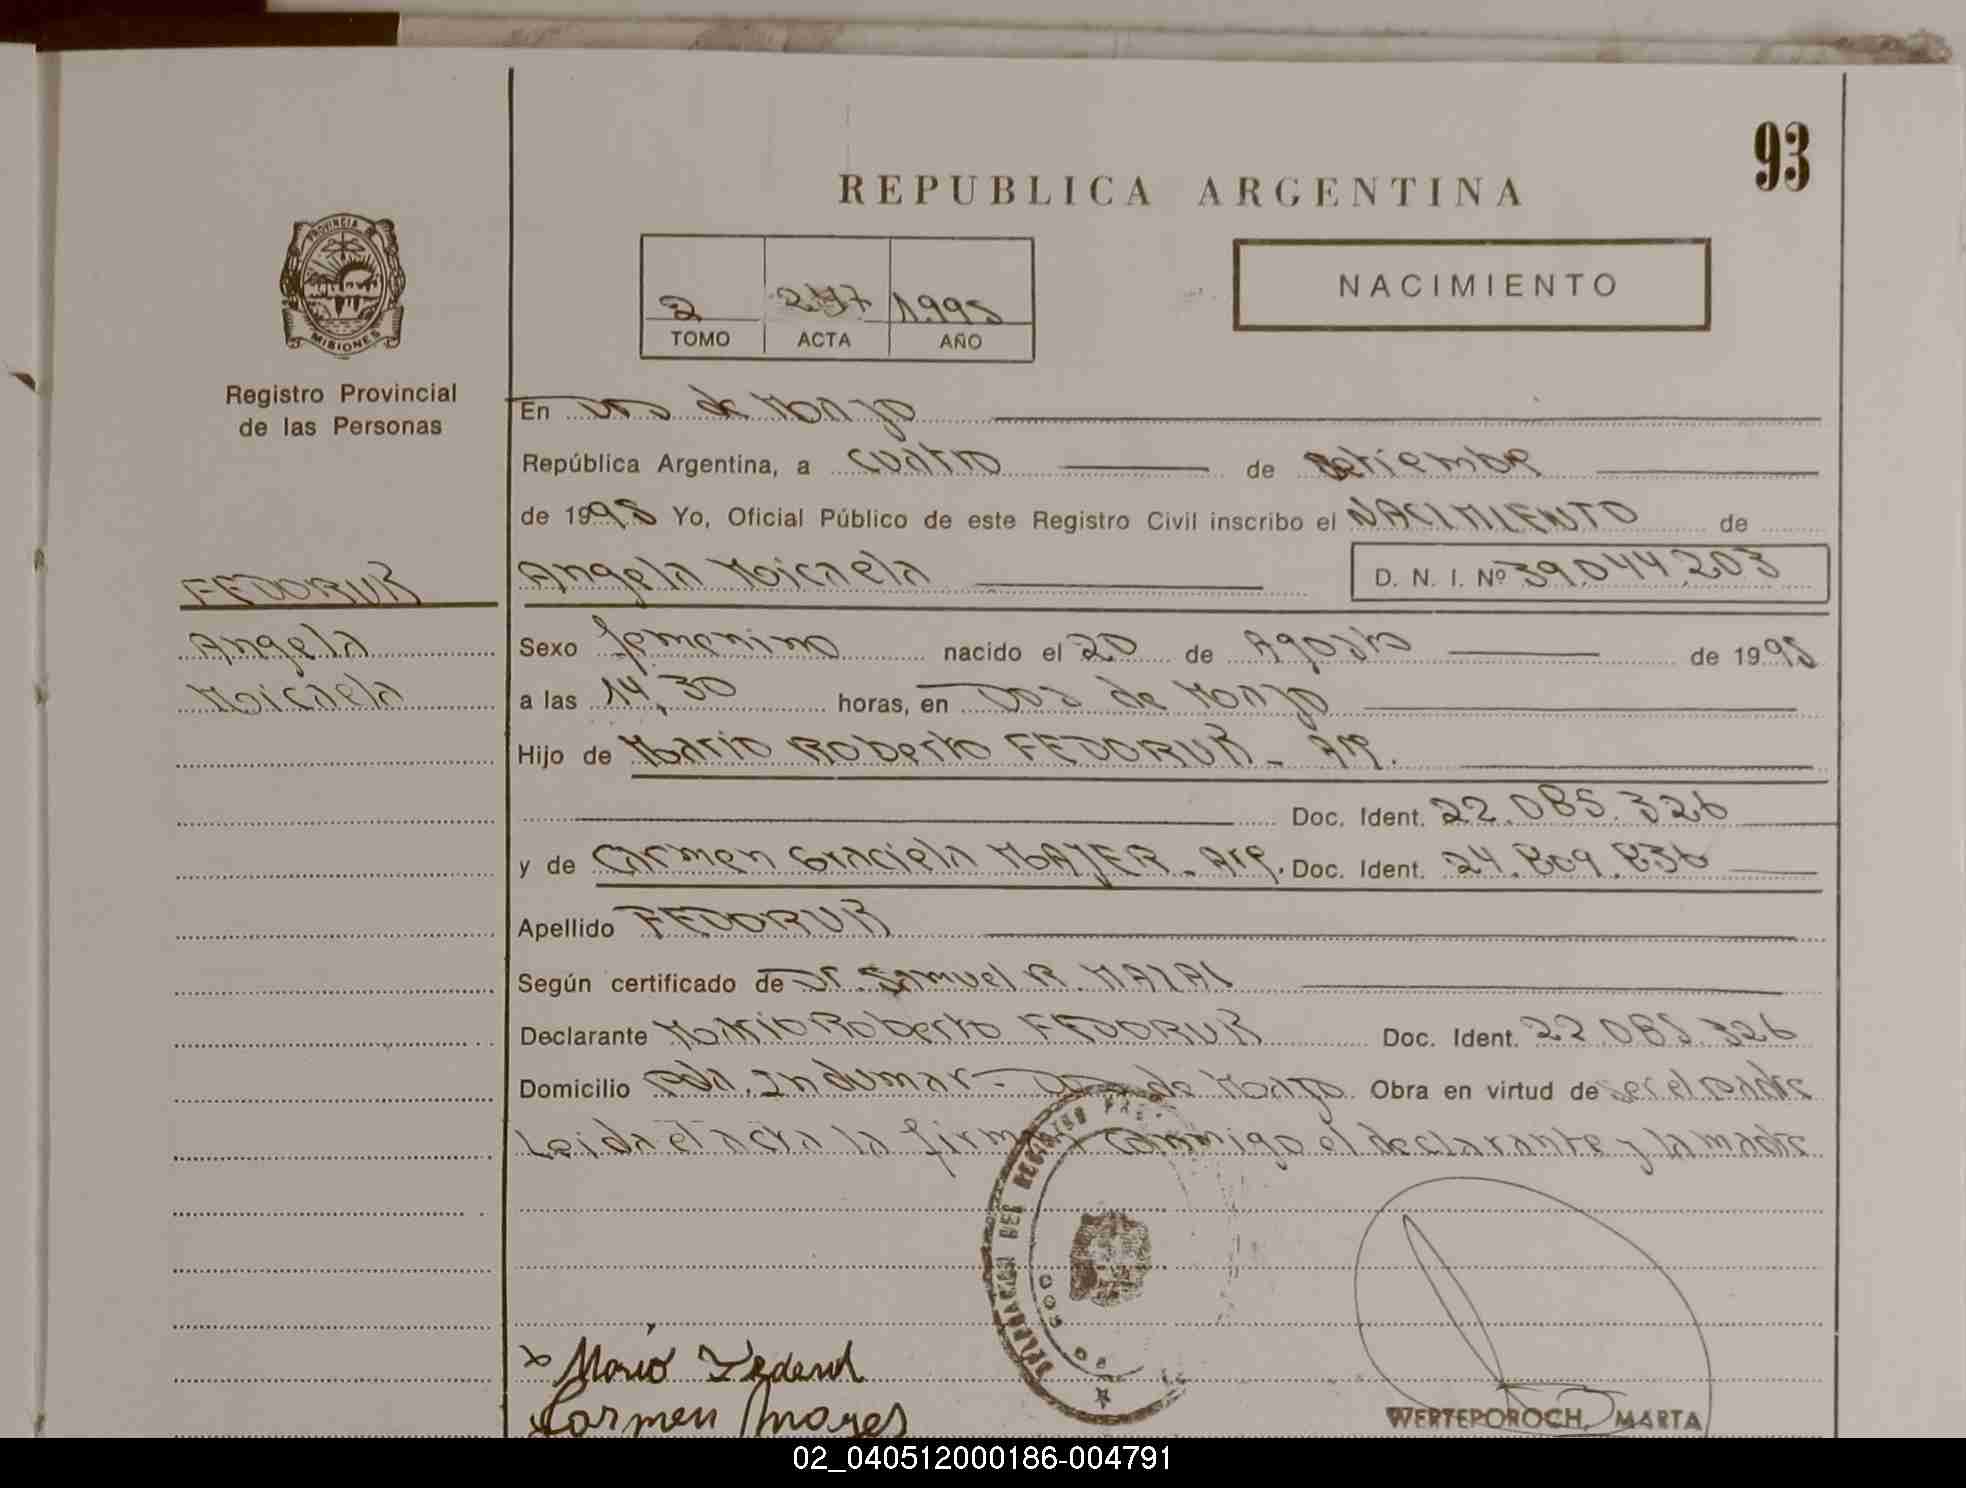 93
REPUBLICA ARGENTINA
PROVINCIA DE
MISIONES
Registro Provincial
de las Personas
NACIMIENTO
2 1.995
TOMO ACTA AÑO
En Dos de Mayo
República Argentina, a cuatro de setiembre
de 1995 Yo, Oficial Público de este Registro Civil inscribo el NACIMIENTO de
FEDORUK
Angela Micaela D. N. I. Nº 39.044.203
Angela
Micaela
Sexo femenino nacido el 20 de Agosto de 1995
a las 14,30 horas, en Dos de Mayo
Hijo de Mario Roberto FEDORUK - Arg.
Doc. Ident. 22.085.326
y de Carmen Graciela MAJER - Arg. Doc. Ident. 24.809.836
Apellido FEDORUK
Según certificado de Dr. Samuel R. MAZAL
Declarante Mario Roberto FEDORUK Doc. Ident. 22.085.326
Domicilio Pda. Indumar - Dos de Mayo. Obra en virtud de ser el padre
Leida el acta la firman conmigo el declarante y la madre
DELEGACION DEL REGISTRO
Mario
Carmen
WERTEPOROCH, MARTA
02_040512000186-004791